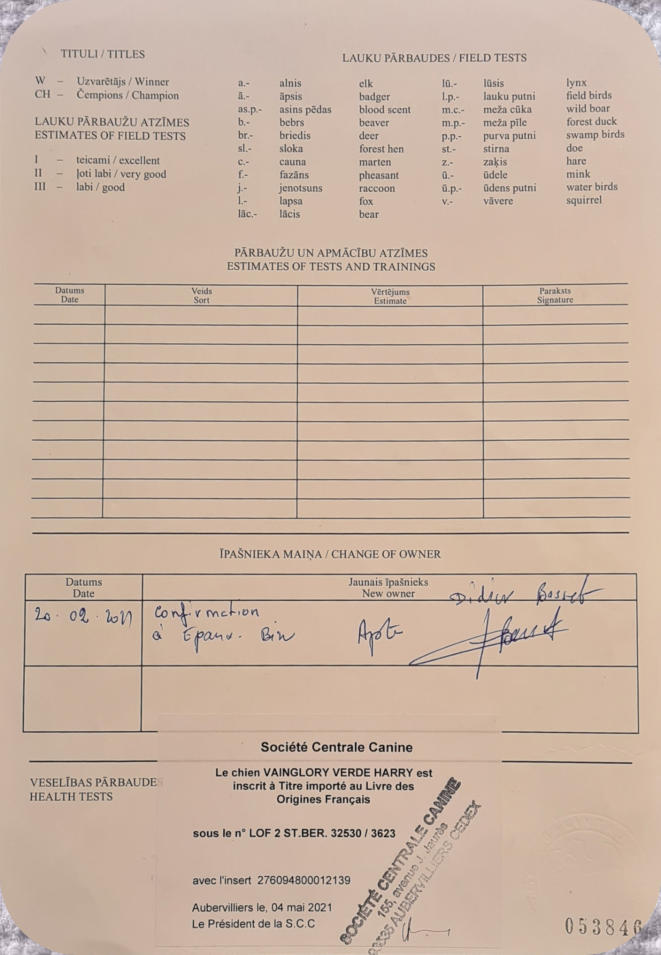 TITULI / TITLES
W – Uzvarētājs / Winner
CH – Čempions / Champion
LAUKU PĀRBAUŽU ATZĪMES
ESTIMATES OF FIELD TESTS
I – teicami / excellent
II – ļoti labi / very good
III – labi / good
LAUKU PĀRBAUDES / FIELD TESTS
a.- alnis elk
ā.- āpsis badger
as.p.- asins pēdas blood scent
b.- bebrs beaver
br.- briedis deer
sl.- sloka forest hen
c.- cauna marten
f.- fazāns pheasant
j.- jenotsuns raccoon
l.- lapsa fox
lāc.- lācis bear
lū.- lūsis lynx
l.p.- lauku putni field birds
m.c.- meža cūka wild boar
m.p.- meža pīle forest duck
p.p.- purva putni swamp birds
st.- stirna doe
z.- zaķis hare
ū.- ūdele mink
ū.p.- ūdens putni water birds
v.- vāvere squirrel
PĀRBAUŽU UN APMĀCĪBU ATZĪMES
ESTIMATES OF TESTS AND TRAININGS
Datums Veids Vērtējums Paraksts
Date Sort Estimate Signature
ĪPAŠNIEKA MAIŅA / CHANGE OF OWNER
Datums Jaunais īpašnieks
Date New owner
Didier Basset
20.02.2021 Confirmation
à Apte
VESELĪBAS PĀRBAUDES
HEALTH TESTS
Société Centrale Canine
Le chien VAINGLORY VERDE HARRY est
inscrit à Titre importé au Livre des
Origines Français
sous le n° LOF 2 ST.BER. 32530 / 3623
avec l'insert 276094800012139
Aubervilliers le, 04 mai 2021
Le Président de la S.C.C
SOCIÉTÉ CENTRALE CANINE
155, avenue J. Jaurès
93535 AUBERVILLIERS CEDEX
053846